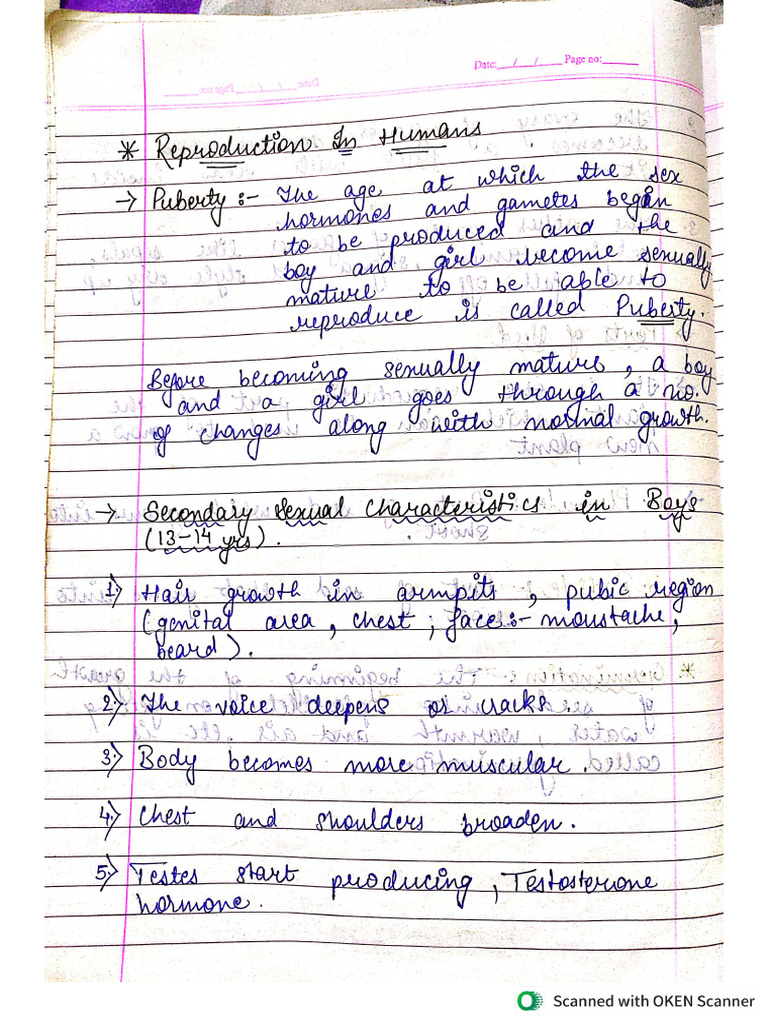 Date: __/__/____ Page no:______
* Reproduction In Humans
→ Puberty :- The age at which the sex
hormones and gametes begin
to be produced and the
boy and girl become sexually
mature to be able to
reproduce is called Puberty.
Before becoming sexually mature, a boy
and a girl goes through a no.
of changes along with normal growth.
→ Secondary Sexual Characteristics in Boys
(13-14 yrs).
1) Hair growth in armpits, pubic region
(genital area, chest ; face :- moustache,
beard).
2) The voice deepens or cracks.
3) Body becomes more muscular.
4) Chest and shoulders broaden.
5) Testes start producing, Testosterone
hormone.
Scanned with OKEN Scanner